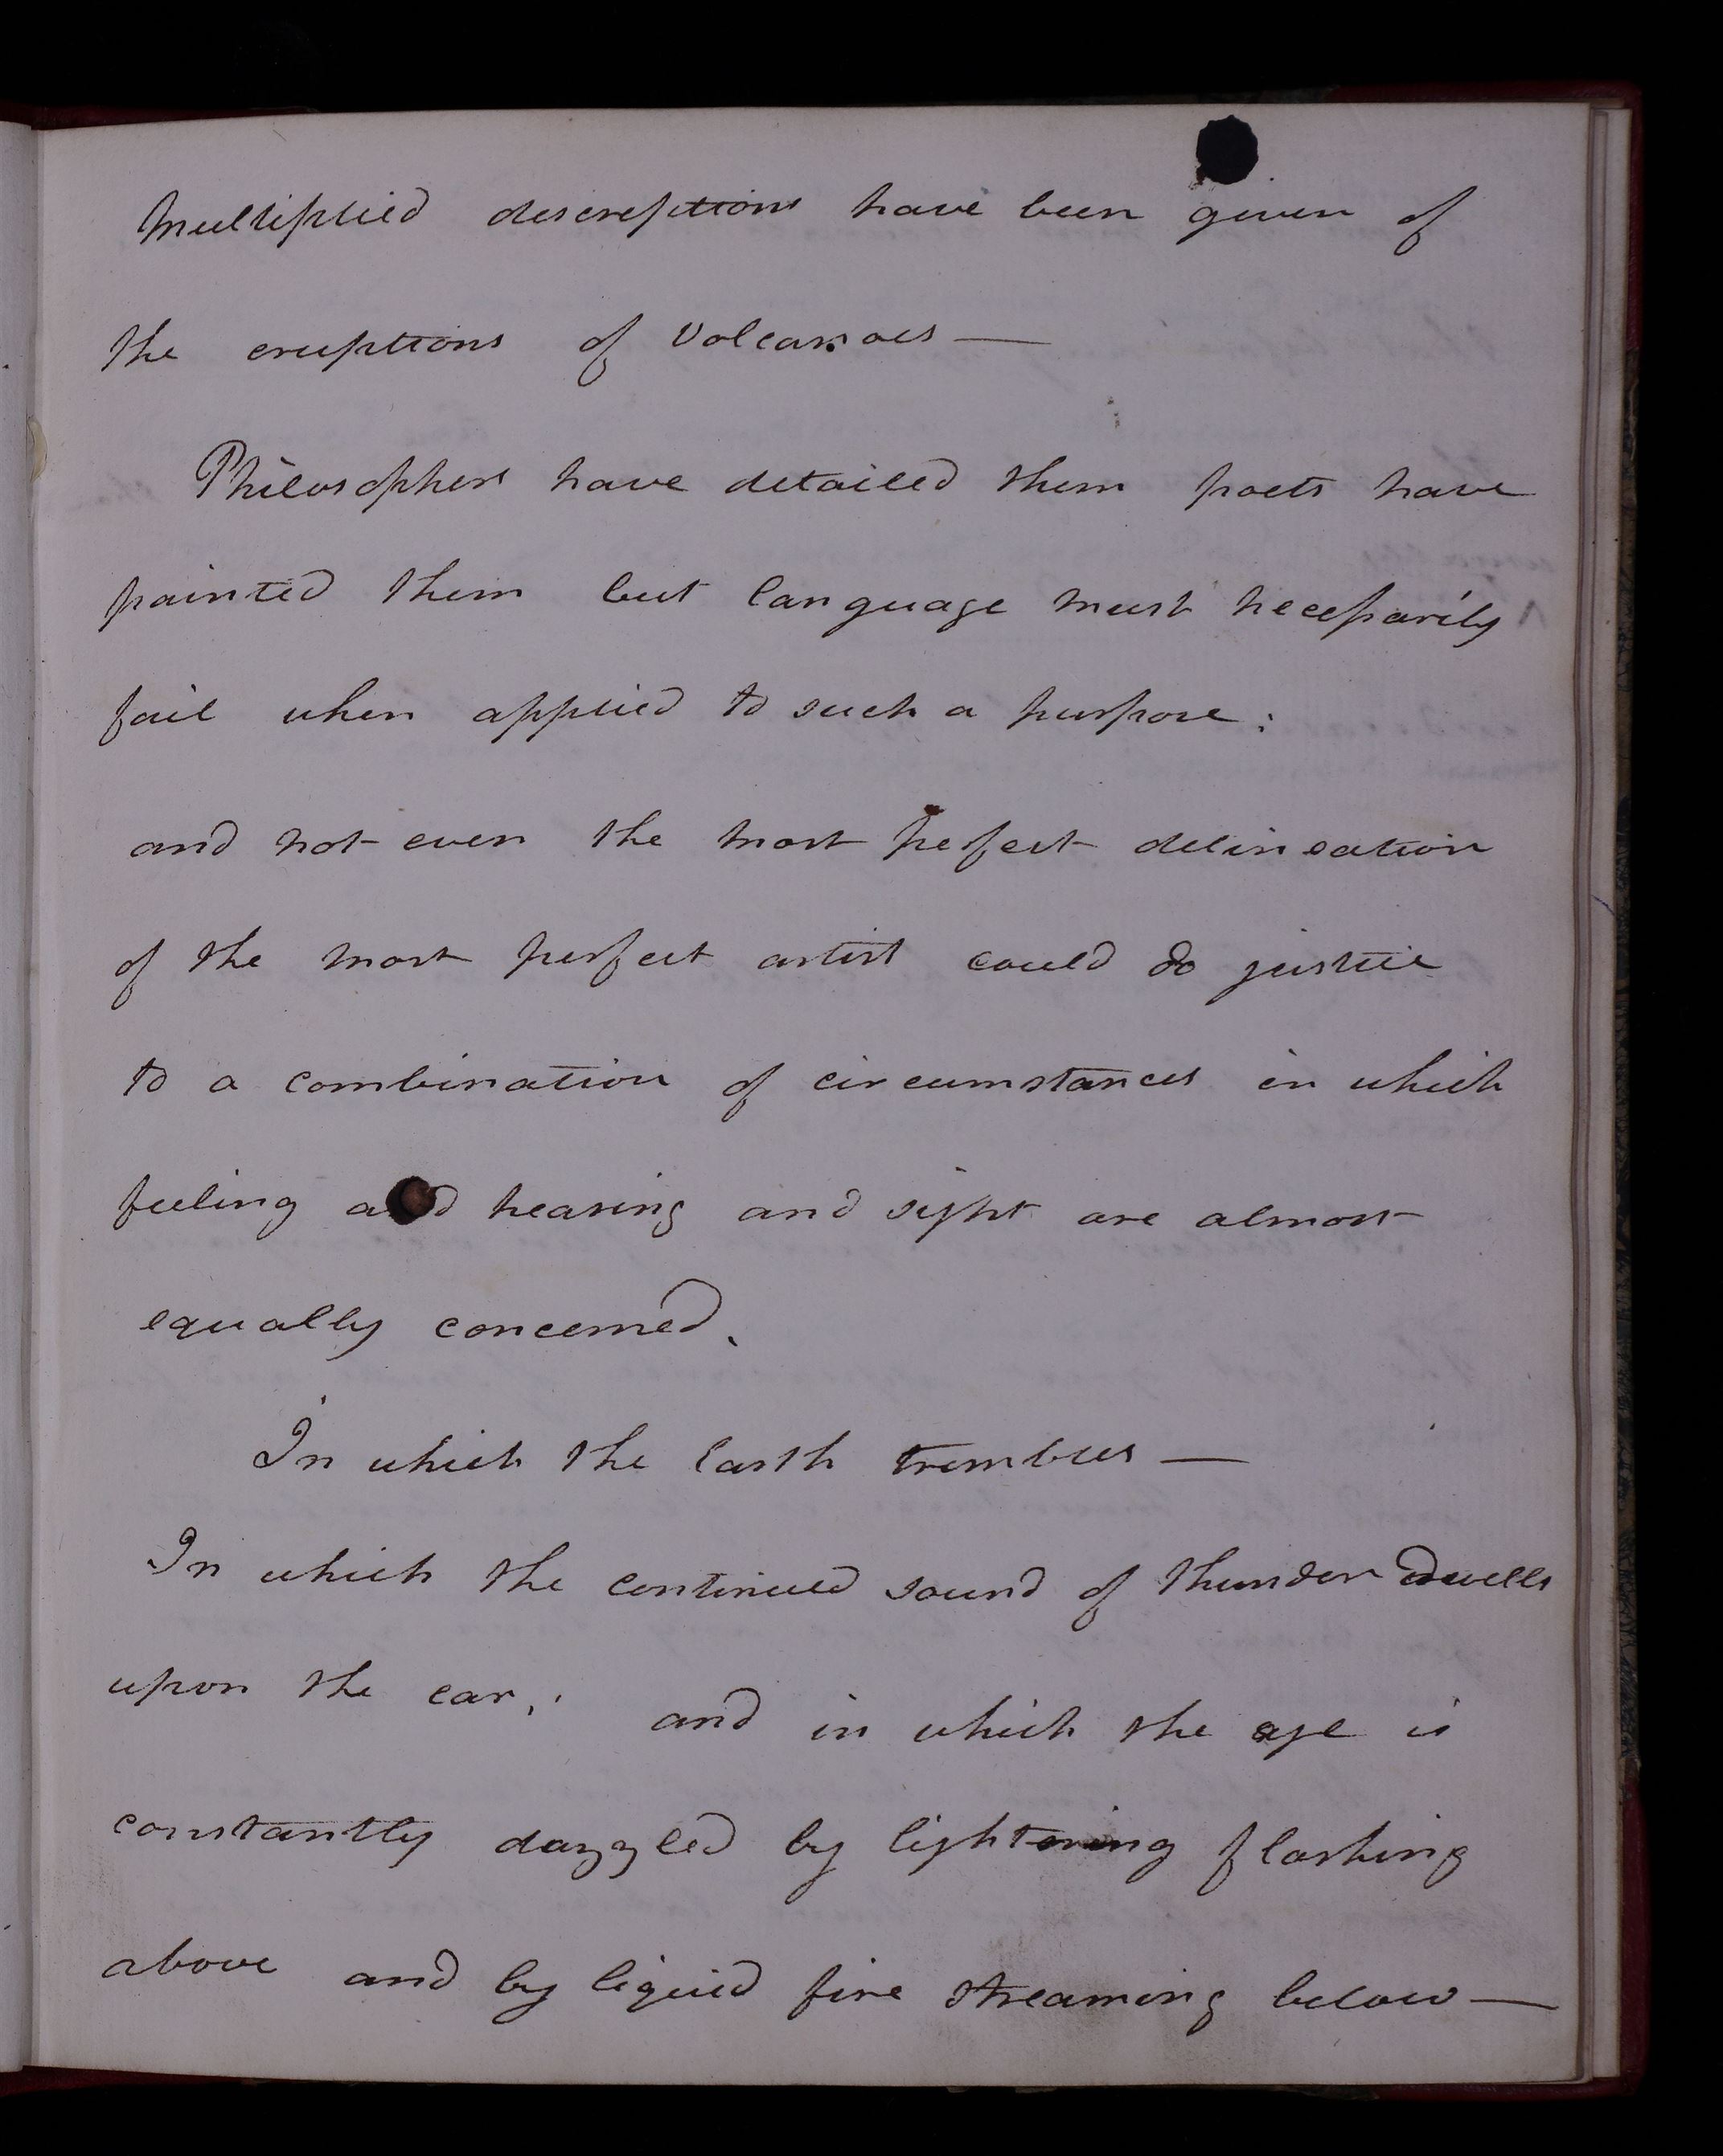 Multiplied descreptions have been given of
the eruptions of Volcanoes —
Philosophers have detailed them poets have
painted them but language must necessarily
fail when applied to such a purpose:
and not even the most perfect delineation
of the most perfect artist could do justice
to a combination of circumstances in which
feeling and hearing and sight are almost
equally concerned.
In which the Earth trembles —
In which the continued sound of thunder dwells
upon the ear,; and in which the eye is
constantly dazzled by lightening flashing
above and by liquid fire streaming below —